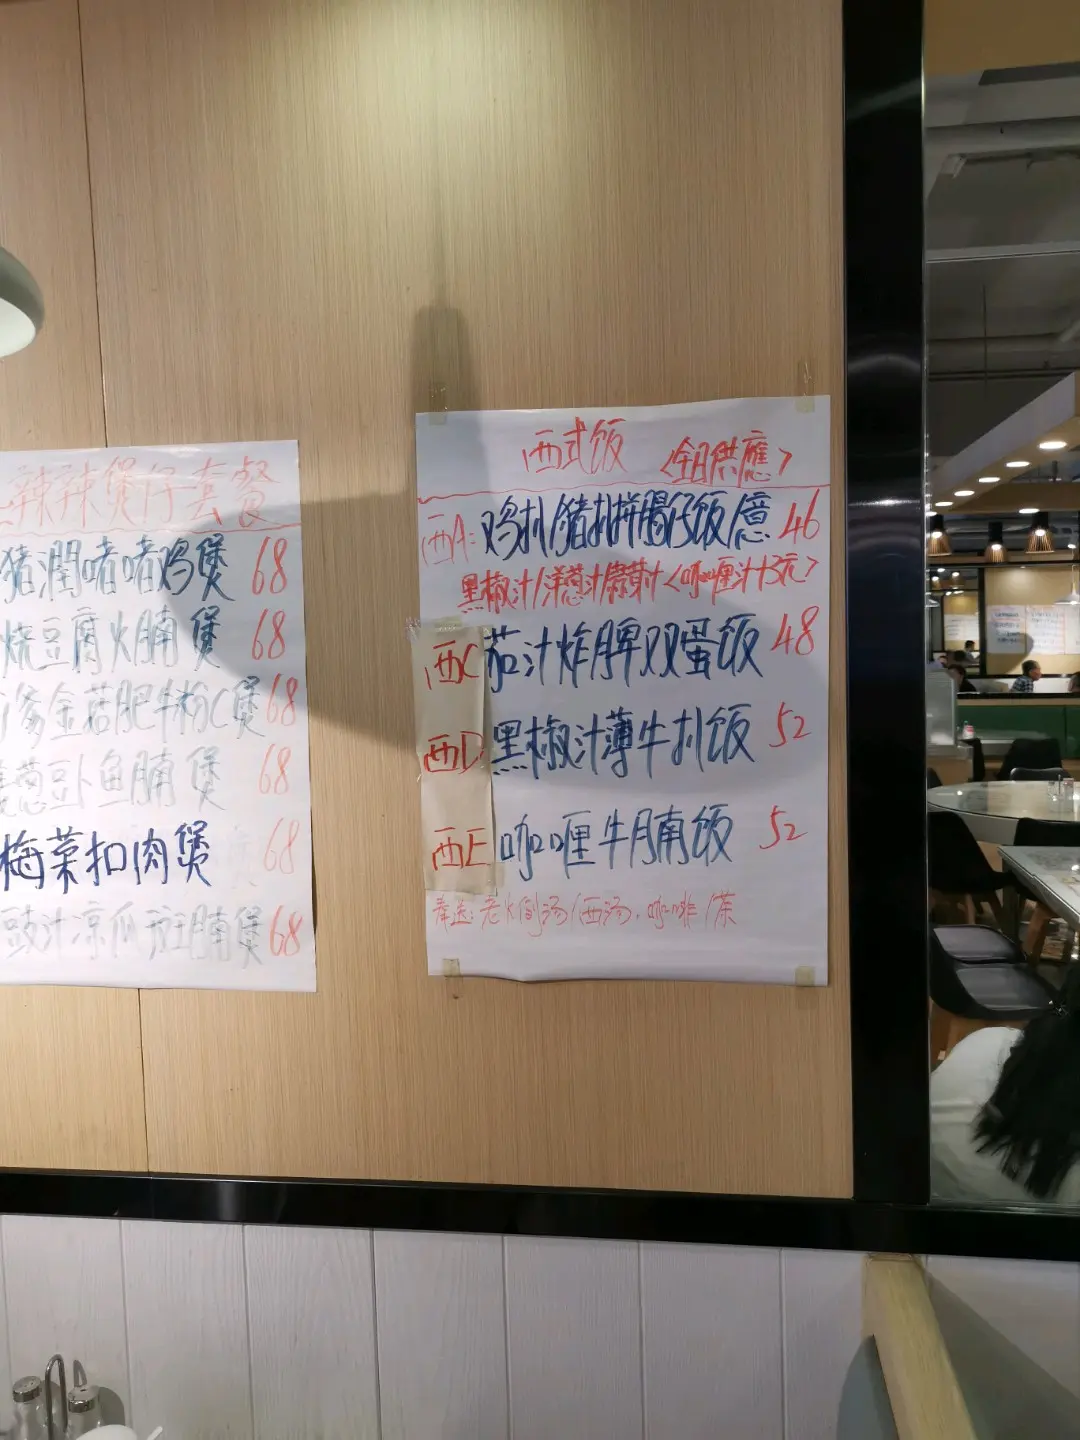 辣辣煲仔套餐
猪潤啫啫鸡煲 68
烧豆腐火腩煲 68
金菇肥牛粉C煲 68
葱豆卜鱼腩煲 68
梅菜扣肉煲 68
豉汁凉瓜斑腩煲 68
西式饭 <全日供應>
西A: 鸡扒/猪扒拼腸仔饭/意 46
黑椒汁/洋葱汁/蘑菇汁<咖喱汁+3元>
西C 茄汁炸脾双蛋饭 48
西D 黑椒汁薄牛扒饭 52
西E 咖喱牛腩饭 52
奉送: 老火例汤/西汤. 咖啡/茶